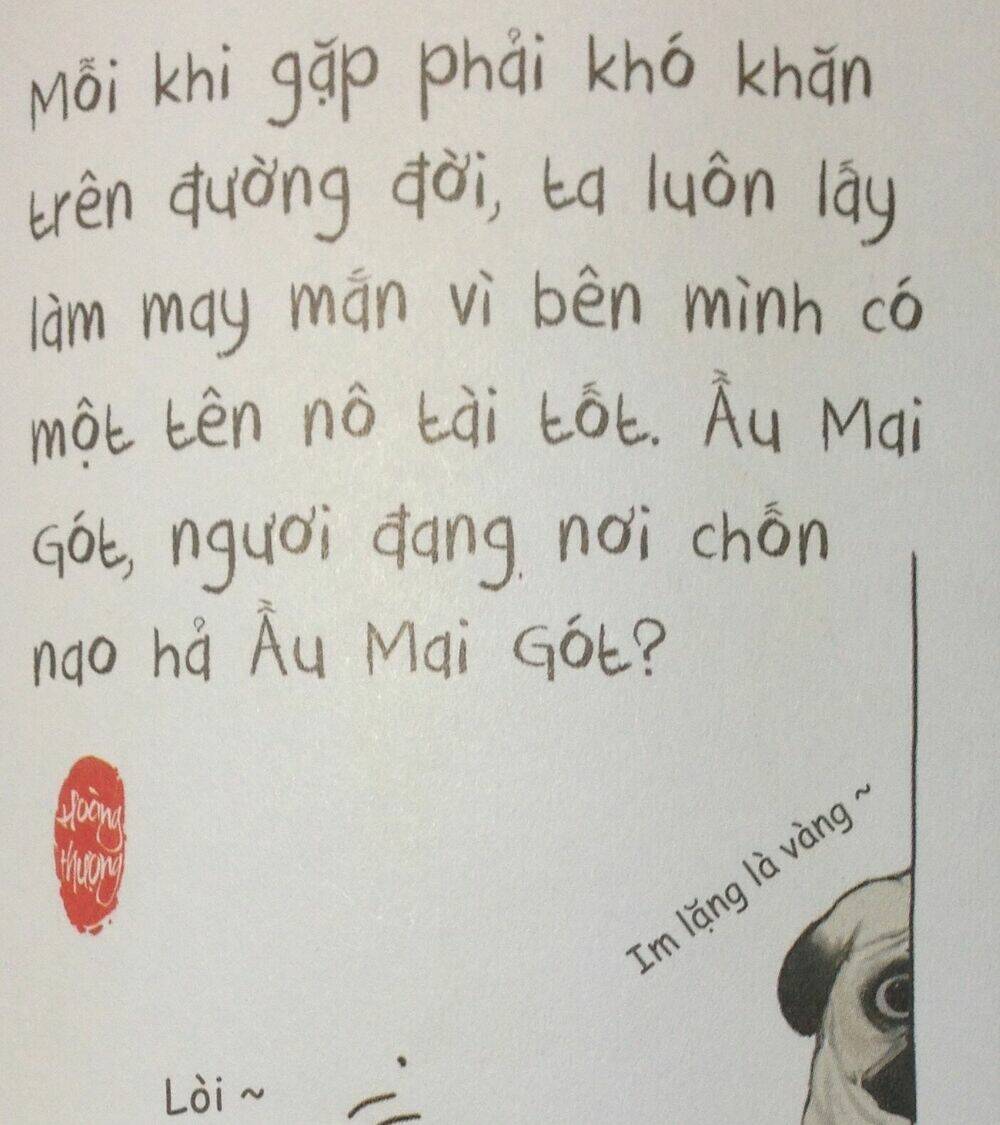 Mỗi khi gặp phải khó khăn
trên đường đời, ta luôn lấy
làm may mắn vì bên mình có
một tên nô tài tốt. Ầu Mai
Gót, ngươi đang nơi chốn
nao hả Ầu Mai Gót?
Hoàng
thượng
Im lặng là vàng ~
Lòi ~